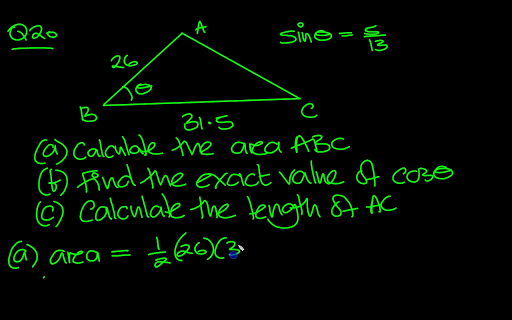 Q20
A
sinθ = 5/13
26
θ
B
C
31.5
(a) Calculate the area ABC
(b) Find the exact value of cosθ
(c) Calculate the length of AC
(a) area = 1/2 (26)(3